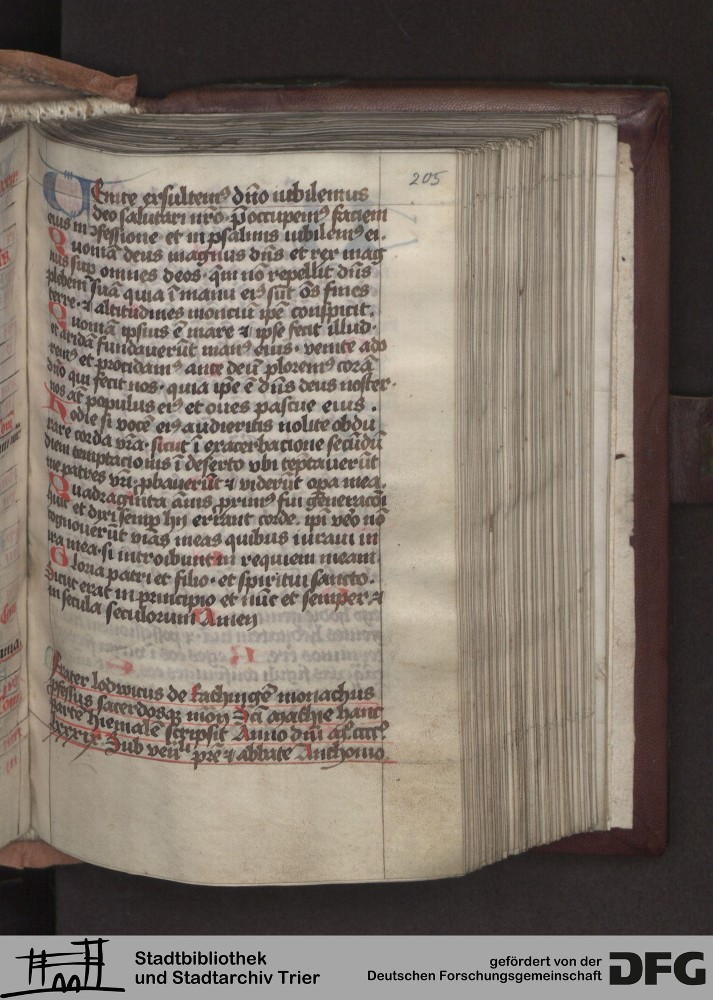 205
Venite exsultem⁹ dn̄o iubilemus
deo salutari nr̄o · p̄occupem⁹ faciem
eius in ꝯfessione et in psalmis iubilem⁹ ei ·
Quoniā deus magnus dn̄s et rex mag
nus sup omnes deos · qm̄ nō repellit dn̄s
plebem suā quia ī manu ei⁹ sūt oēs fines
terre · ⁊ altitudines monciū ip̄e conspicit .
Quoniā ipsius ē mare ⁊ ipse fecit illud ·
et aridā fundauerūt man⁹ eius · venite ado
rem⁹ et procidam⁹ ante deū plorem⁹ corā
dn̄o qui fecit nos · quia ip̄e ē dn̄s deus noster ·
nos āt populus ei⁹ et oues pascue eius .
Hodie si vocē ei⁹ audieritis nolite obdu
rare corda vr̄a · sicut ī exacerbacione secūdū
diem temptacionis ī deserto vbi tēptauerūt
me patres vr̄i ꝓbauerūt ⁊ viderūt opa mea .
Quadraginta ānis prim⁹ fui gēneracōi
huic et dixi semp hij errant corde · ip̄i v̄o nō
cognouerūt vias meas quibus iuraui in
ira mea · si introibunt in requiem meam
Gloria patri et filio · et spiritui sancto .
Sicut erat in principio et nūc et semper ⁊
in secula seculorum Amen
Frater lodwicus de
monachus
ꝓfessus sacerdosqꝫ mon̄ Scī mathie hanc
parte hiemalē scripsit Anno dn̄i
Sub ven̄li pr̄e ⁊ abbate Anthonio
Stadtbibliothek
und Stadtarchiv Trier
gefördert von der
Deutschen Forschungsgemeinschaft
DFG